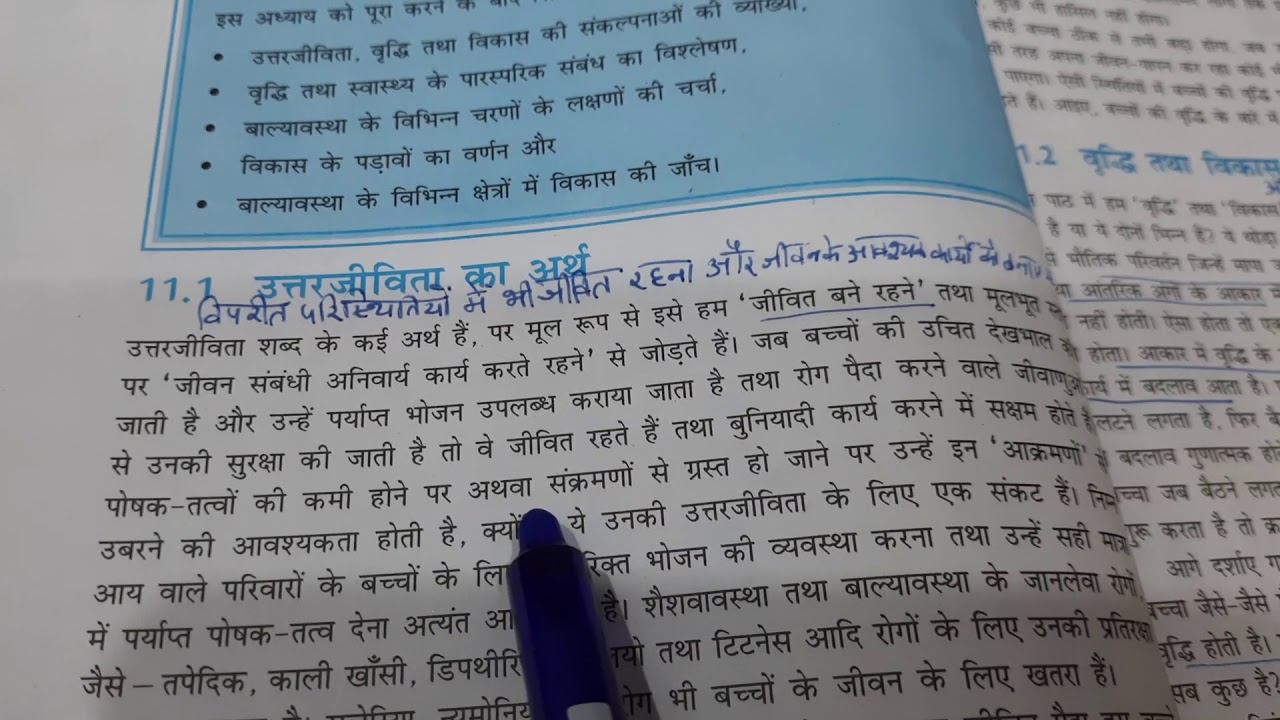 इस अध्याय को पूरा करने के बाद
• उत्तरजीविता, वृद्धि तथा विकास की संकल्पनाओं की व्याख्या,
• वृद्धि तथा स्वास्थ्य के पारस्परिक संबंध का विश्लेषण,
• बाल्यावस्था के विभिन्न चरणों के लक्षणों की चर्चा,
• विकास के पड़ावों का वर्णन और
• बाल्यावस्था के विभिन्न क्षेत्रों में विकास की जाँच।
11.1 उत्तरजीविता का अर्थ
विपरीत परिस्थितियों में भी जीवित रहना और जीवन के आवश्यक कार्यो को
उत्तरजीविता शब्द के कई अर्थ हैं, पर मूल रूप से इसे हम 'जीवित बने रहने' तथा मूलभूत
पर 'जीवन संबंधी अनिवार्य कार्य करते रहने' से जोड़ते हैं। जब बच्चों की उचित देखभाल की
जाती है और उन्हें पर्याप्त भोजन उपलब्ध कराया जाता है तथा रोग पैदा करने वाले जीवाणुओं
से उनकी सुरक्षा की जाती है तो वे जीवित रहते हैं तथा बुनियादी कार्य करने में सक्षम होते हैं
पोषक-तत्वों की कमी होने पर अथवा संक्रमणों से ग्रस्त हो जाने पर उन्हें इन 'आक्रमणों' से
उबरने की आवश्यकता होती है, ये उनकी उत्तरजीविता के लिए एक संकट हैं। निम्न
आय वाले परिवारों के बच्चों के भोजन की व्यवस्था करना तथा उन्हें सही मात्रा
में पर्याप्त पोषक-तत्व देना अत्यंत है। शैशवावस्था तथा बाल्यावस्था के जानलेवा रोगों
जैसे – तपेदिक, काली खाँसी, तथा टिटनेस आदि रोगों के लिए उनकी प्रतिरक्षा
भी बच्चों के जीवन के लिए खतरा हैं।
1.2 वृद्धि तथा विकास
पाठ में हम 'वृद्धि' तथा 'विकास
है या ये दोनों भिन्न हैं? ये थोड़ा
भौतिक परिवर्तन जिन्हें मापा
आंतरिक अंगों के आकार
नहीं होती। ऐसा होता तो
होता। आकार में वृद्धि के
कार्य में बदलाव आता है।
लगता है, फिर
बदलाव गुणात्मक
बच्चा जब बैठने
शुरू करता है तो
आगे दर्शाए
बच्चा जैसे-जैसे
वृद्धि होती है।
सब कुछ है?